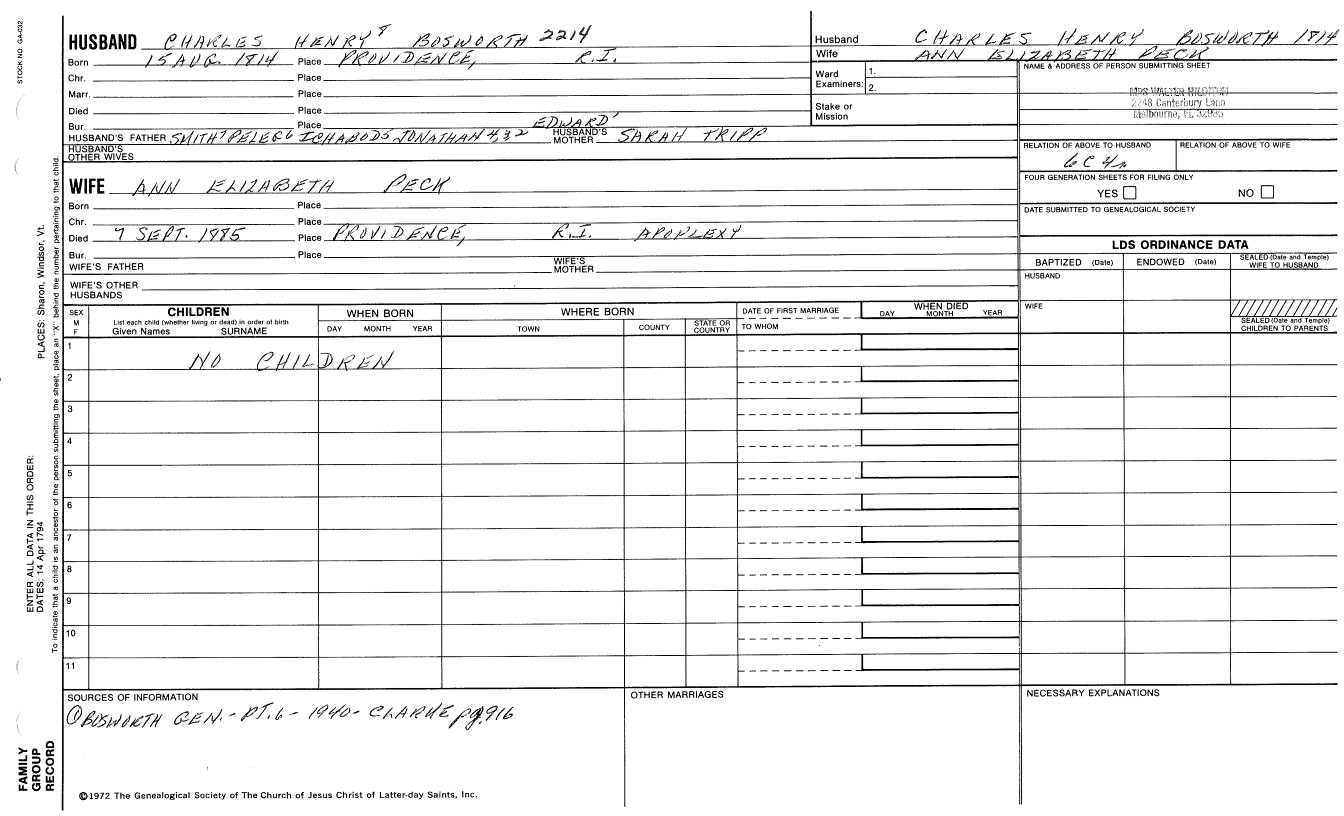 STOCK NO. GA-032
HUSBAND CHARLES HENRY 8 BOSWORTH 2214
Born 15 AUG. 1814 Place PROVIDENCE, R.I.
Chr. Place
Marr. Place
Died Place
Bur. Place
EDWARD 1
HUSBAND'S FATHER SMITH 7 PELEG 6 ICHABOD 5 JONATHAN 4,3,2 HUSBAND'S MOTHER SARAH TRIPP
HUSBAND'S OTHER WIVES
Husband CHARLES HENRY BOSWORTH 1814
Wife ANN ELIZABETH PECK
Ward Examiners: 1.
2.
Stake or Mission
NAME & ADDRESS OF PERSON SUBMITTING SHEET
MRS WALTER
2248 Canterbury Lane
Melbourne, Fl. 32935
RELATION OF ABOVE TO HUSBAND RELATION OF ABOVE TO WIFE
6 C 4r
FOUR GENERATION SHEETS FOR FILING ONLY
YES NO
DATE SUBMITTED TO GENEALOGICAL SOCIETY
WIFE ANN ELIZABETH PECK
Born Place
Chr. Place
Died 7 SEPT. 1885 Place PROVIDENCE, R.I. APOPLEXY
Bur. Place
WIFE'S FATHER WIFE'S MOTHER
WIFE'S OTHER HUSBANDS
LDS ORDINANCE DATA
BAPTIZED (Date) ENDOWED (Date) SEALED (Date and Temple) WIFE TO HUSBAND
HUSBAND
WIFE
SEALED (Date and Temple) CHILDREN TO PARENTS
SEX M F
CHILDREN
List each child (whether living or dead) in order of birth
Given Names SURNAME
WHEN BORN
DAY MONTH YEAR
WHERE BORN
TOWN COUNTY STATE OR COUNTRY
DATE OF FIRST MARRIAGE
TO WHOM
WHEN DIED
DAY MONTH YEAR
1
NO CHILDREN
2
3
4
5
6
7
8
9
10
11
SOURCES OF INFORMATION
① BOSWORTH GEN.- PT. 6 - 1940 - CLARKE pg. 916
OTHER MARRIAGES
NECESSARY EXPLANATIONS
©1972 The Genealogical Society of The Church of Jesus Christ of Latter-day Saints, Inc.
PLACES: Sharon, Windsor, Vt.
ENTER ALL DATA IN THIS ORDER:
DATES: 14 Apr 1794
To indicate that a child is an ancestor of the person submitting the sheet, place an "X" behind the number pertaining to that child.
FAMILY GROUP RECORD